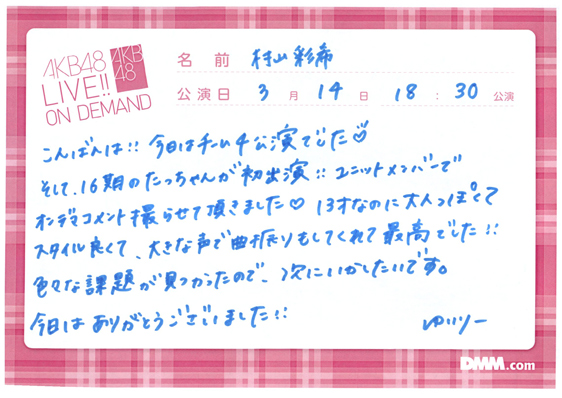 AKB48
LIVE!!
ON DEMAND
AKB
48
名前 村山彩希
公演日 3月14日 18:30公演
こんばんは!! 今日はチーム4公演でした♡
そして、16期のたっちゃんが初出演!! ユニットメンバーで
オンデマコメント撮らせて頂きました♡ 13才なのに大人っぽくて
スタイル良くて、大きな声で曲振りもしてくれて最高でした!!
色々な課題が見つかったので、次にいかしたいです。
今日はありがとうございました!!
ゆいりー
DMM.com